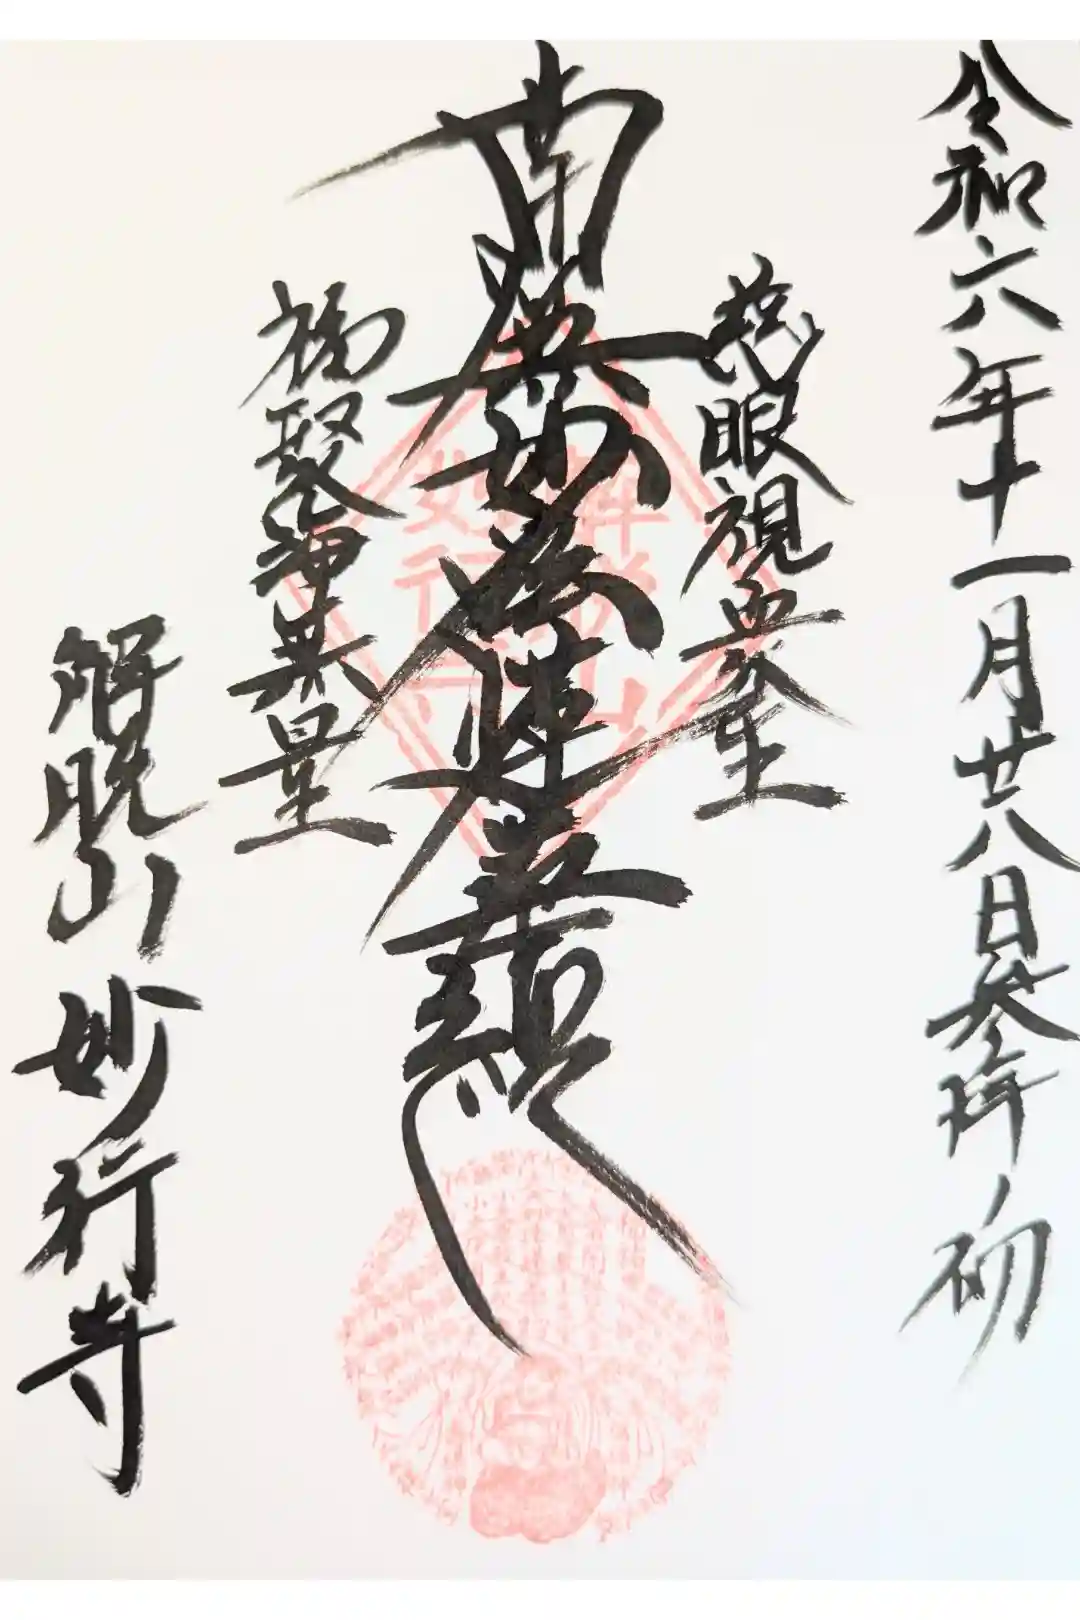 令和六年十一月廿八日参拝 初
慈眼視衆生
南無妙法蓮華経
福聚海無量
解脱山 妙行寺